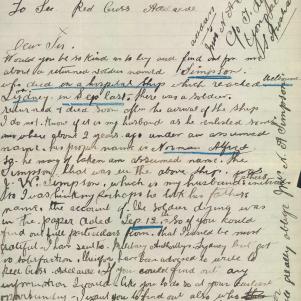 To Sec. Red Cross Adelaide
Dear Sir.
Would you be so kind as to try and find out for me
about a returned soldier named Simpson.
who died on a hospital ship which reached
Sydney in Sep last, there was a soldier
returned & died soon after the arrival of the ship
I do not know if it is my husband as he enlisted some
where about 2 years ago under an assumed
name, his proper name is Norman Alfred
so he may of taken an assumed name. the
Simpson, that was in the above ship,
J. W. Simpson, which is my husbands
so I am thinking perhaps he took his fathers
name. the account of the soldier dying was
in the paper dated Sep 12 So if you could
find out full particulars from, that I would be most
grateful. I have sent to Military Authoritys, Sydney but got
no satisfaction, therefore I am advised to write to
Red Cross Adelaide if you could find out any
information I would like you to do so at your earliest
opportunity, I want you to find out also
Mrs N. A. Simpson